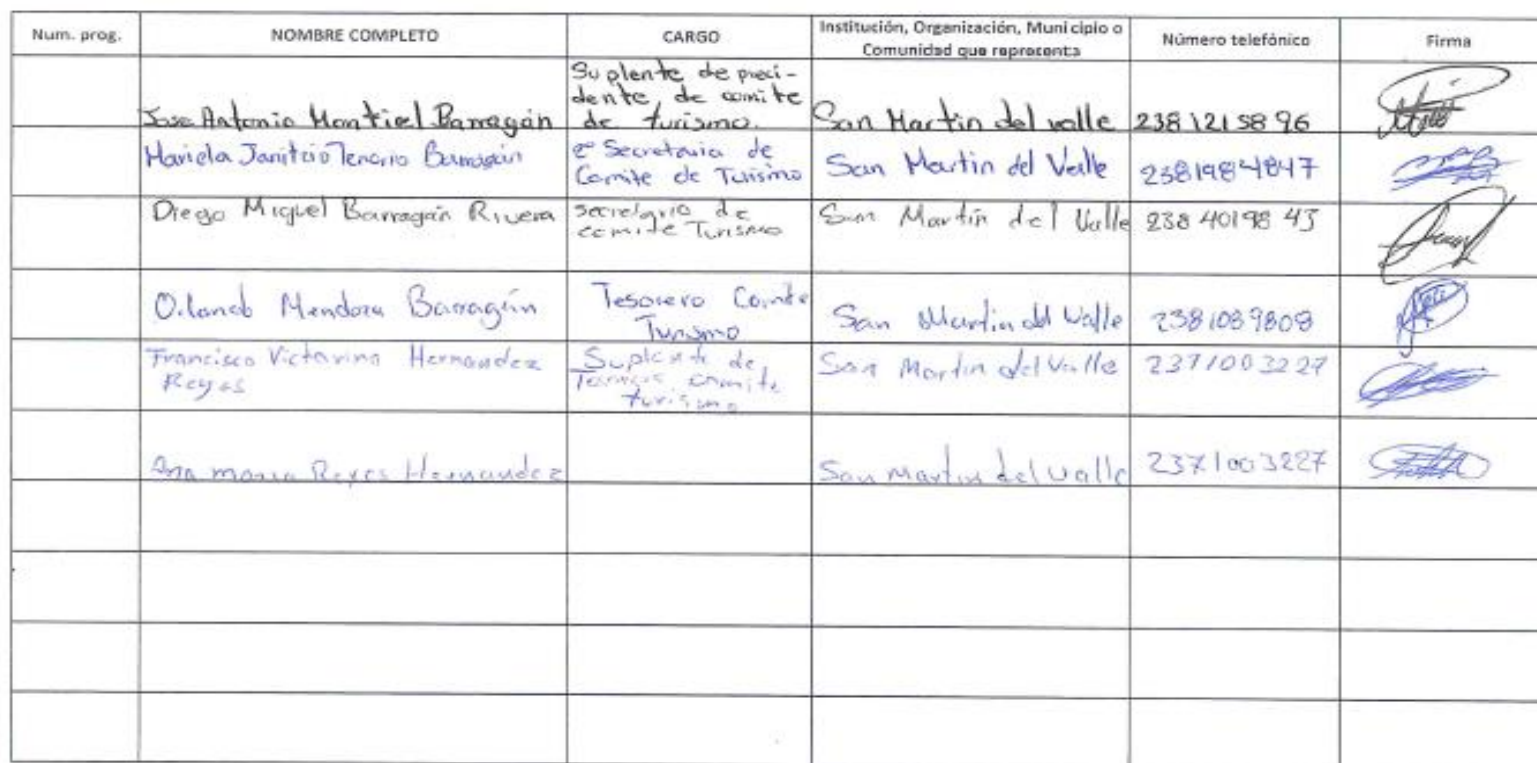 Num. prog. NOMBRE COMPLETO CARGO Institución, Organización, Municipio o Comunidad que representa Número telefónico Firma
Suplente de preci-
dente, de comite
Jose Antonio Montiel Barragán de turismo. San Martin del valle 238 121 58 96
Mariela Tenorio Barragán 2ª Secretaria de
Comite de Turismo San Martin del Valle 2381984847
Diego Miguel Barragán Rivera secretario de
comite Turismo San Martín del Valle 238 40198 43
Orlando Mendoza Barragán Tesorero Comite
Turismo San Martin del Valle 2381089808
Francisco Victorino Hernandez
Reyes Suplente de
comite
turismo San Martin del Valle 2371003227
Ana maria Reyes Hernandez San Martin del Valle 2371003227